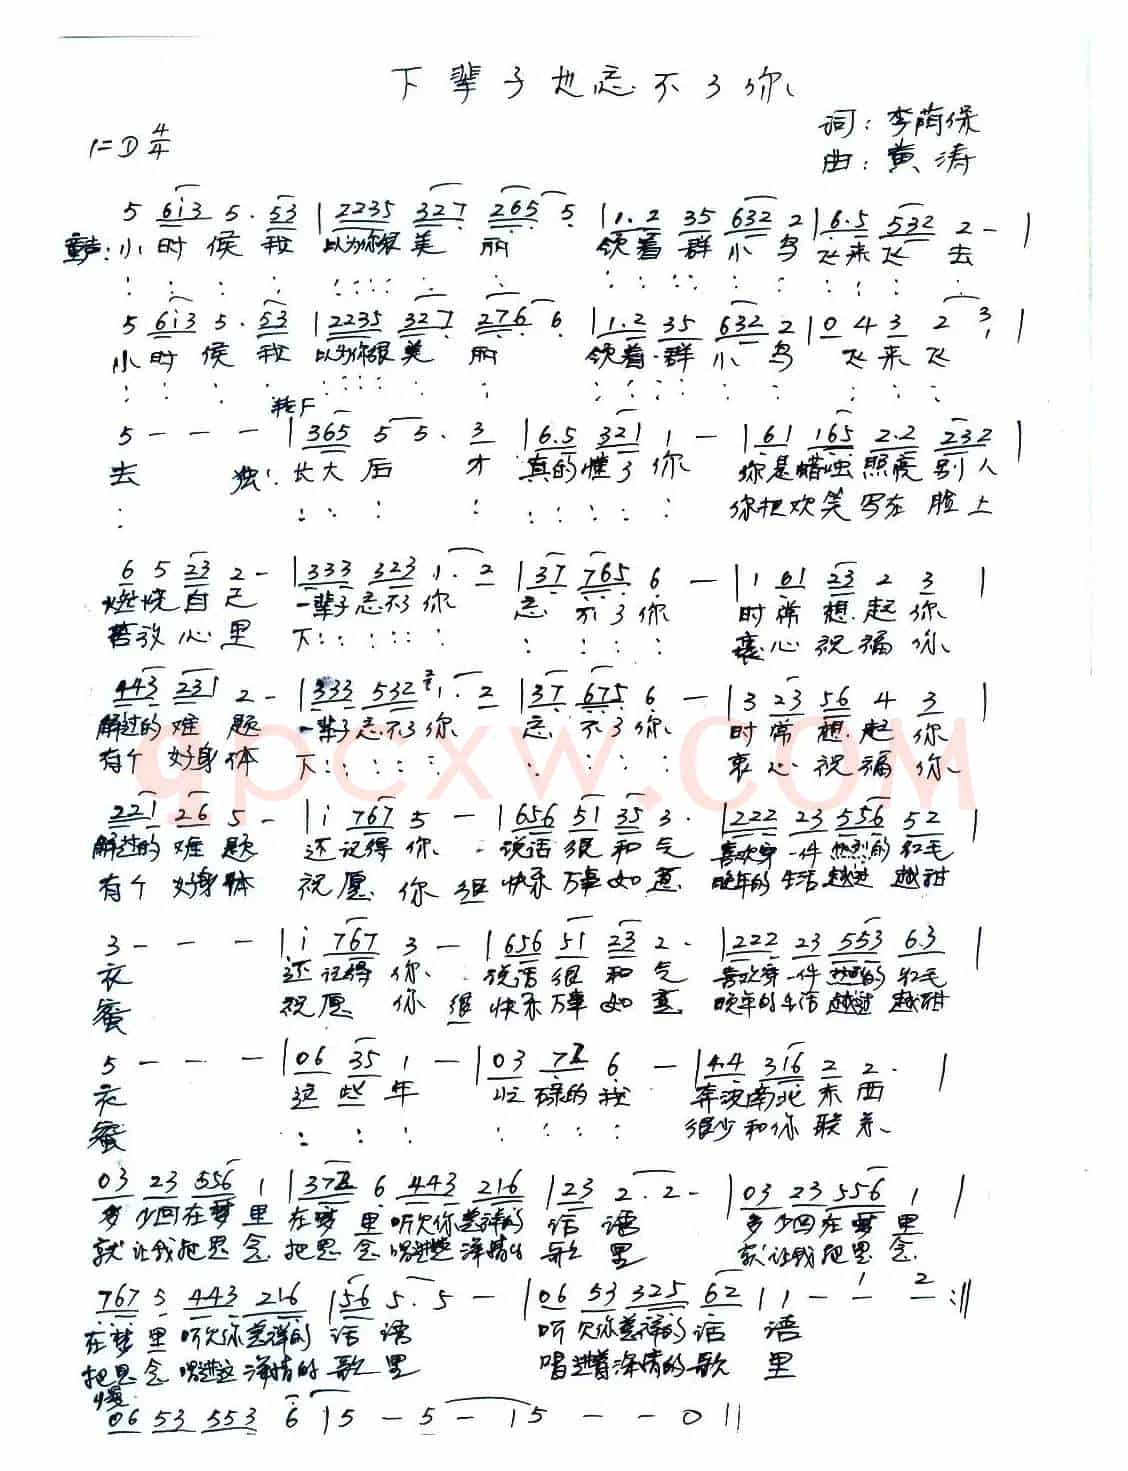 下辈子也忘不了你
1=D 4/4
词：李荫保
曲：黄涛
5 6i3 5. 53 | 2235 327 265 5 | 1.2 35 632 2 | 6.5 532 2 - |
童声：小时候我 以为你很美丽 领着群小鸟飞来飞去
5 6i3 5. 53 | 2235 327 276 6 | 1.2 35 632 2 | 0 4 3 2 3 1 |
小时候我 以为你很美丽 领着群小鸟 飞来飞
转F
5 - - - | 365 5 5. 3 | 6.5 321 1 - | 61 165 2.2 232 |
去 独：长大后才 真的懂了你 你是蜡烛照亮别人
你把欢笑写在脸上
6 5 23 2 - | 333 323 1. 2 | 37 765 6 - | 1 01 23 2 3 |
燃烧自己 一辈子忘不了你 忘不了你 时常想起你
苦放心里 下 衷心祝福你
443 231 2 - | 333 532 1. 2 | 37 675 6 - | 3 23 56 4 3 |
解过的难题 一辈子忘不了你 忘不了你 时常想起你
有个好身体 下 衷心祝福你
qpcxw.com
221 26 5 - | i 767 5 - | 656 51 35 3. | 222 23 556 52 |
解过的难题 还记得你 说话很和气 喜欢穿一件热烈的红毛
有个好身体 祝愿你很快乐万事如意 晚年的生活越过越甜
3 - - - | i 767 3 - | 656 51 23 2. | 222 23 553 6.3 |
衣 还记得你 说话很和气 喜欢穿一件热烈的红毛
蜜 祝愿你很快乐万事如意 晚年的生活越过越甜
5 - - - | 06 35 1 - | 03 7 6 - | 4.4 316 2 2. |
衣 这些年 忙碌的我 奔波南北东西
蜜 很少和你联系
03 23 556 1 | 37 6 443 216 | 23 2. 2 - | 03 23 556 1 |
多少回在梦里 在梦里听你慈祥的话语 多少回在梦里
就让我把思念 把思念唱进深情的歌里 就让我把思念
767 5 443 216 | 56 5. 5 - | 06 53 325 62 | 1 - 1 2 :||
在梦里听你慈祥的话语 听你慈祥的话语
把思念唱进这深情的歌里 唱进着深情的歌里
慢
06 53 553 6 | 5 - 5 - | 5 - - 0 ||